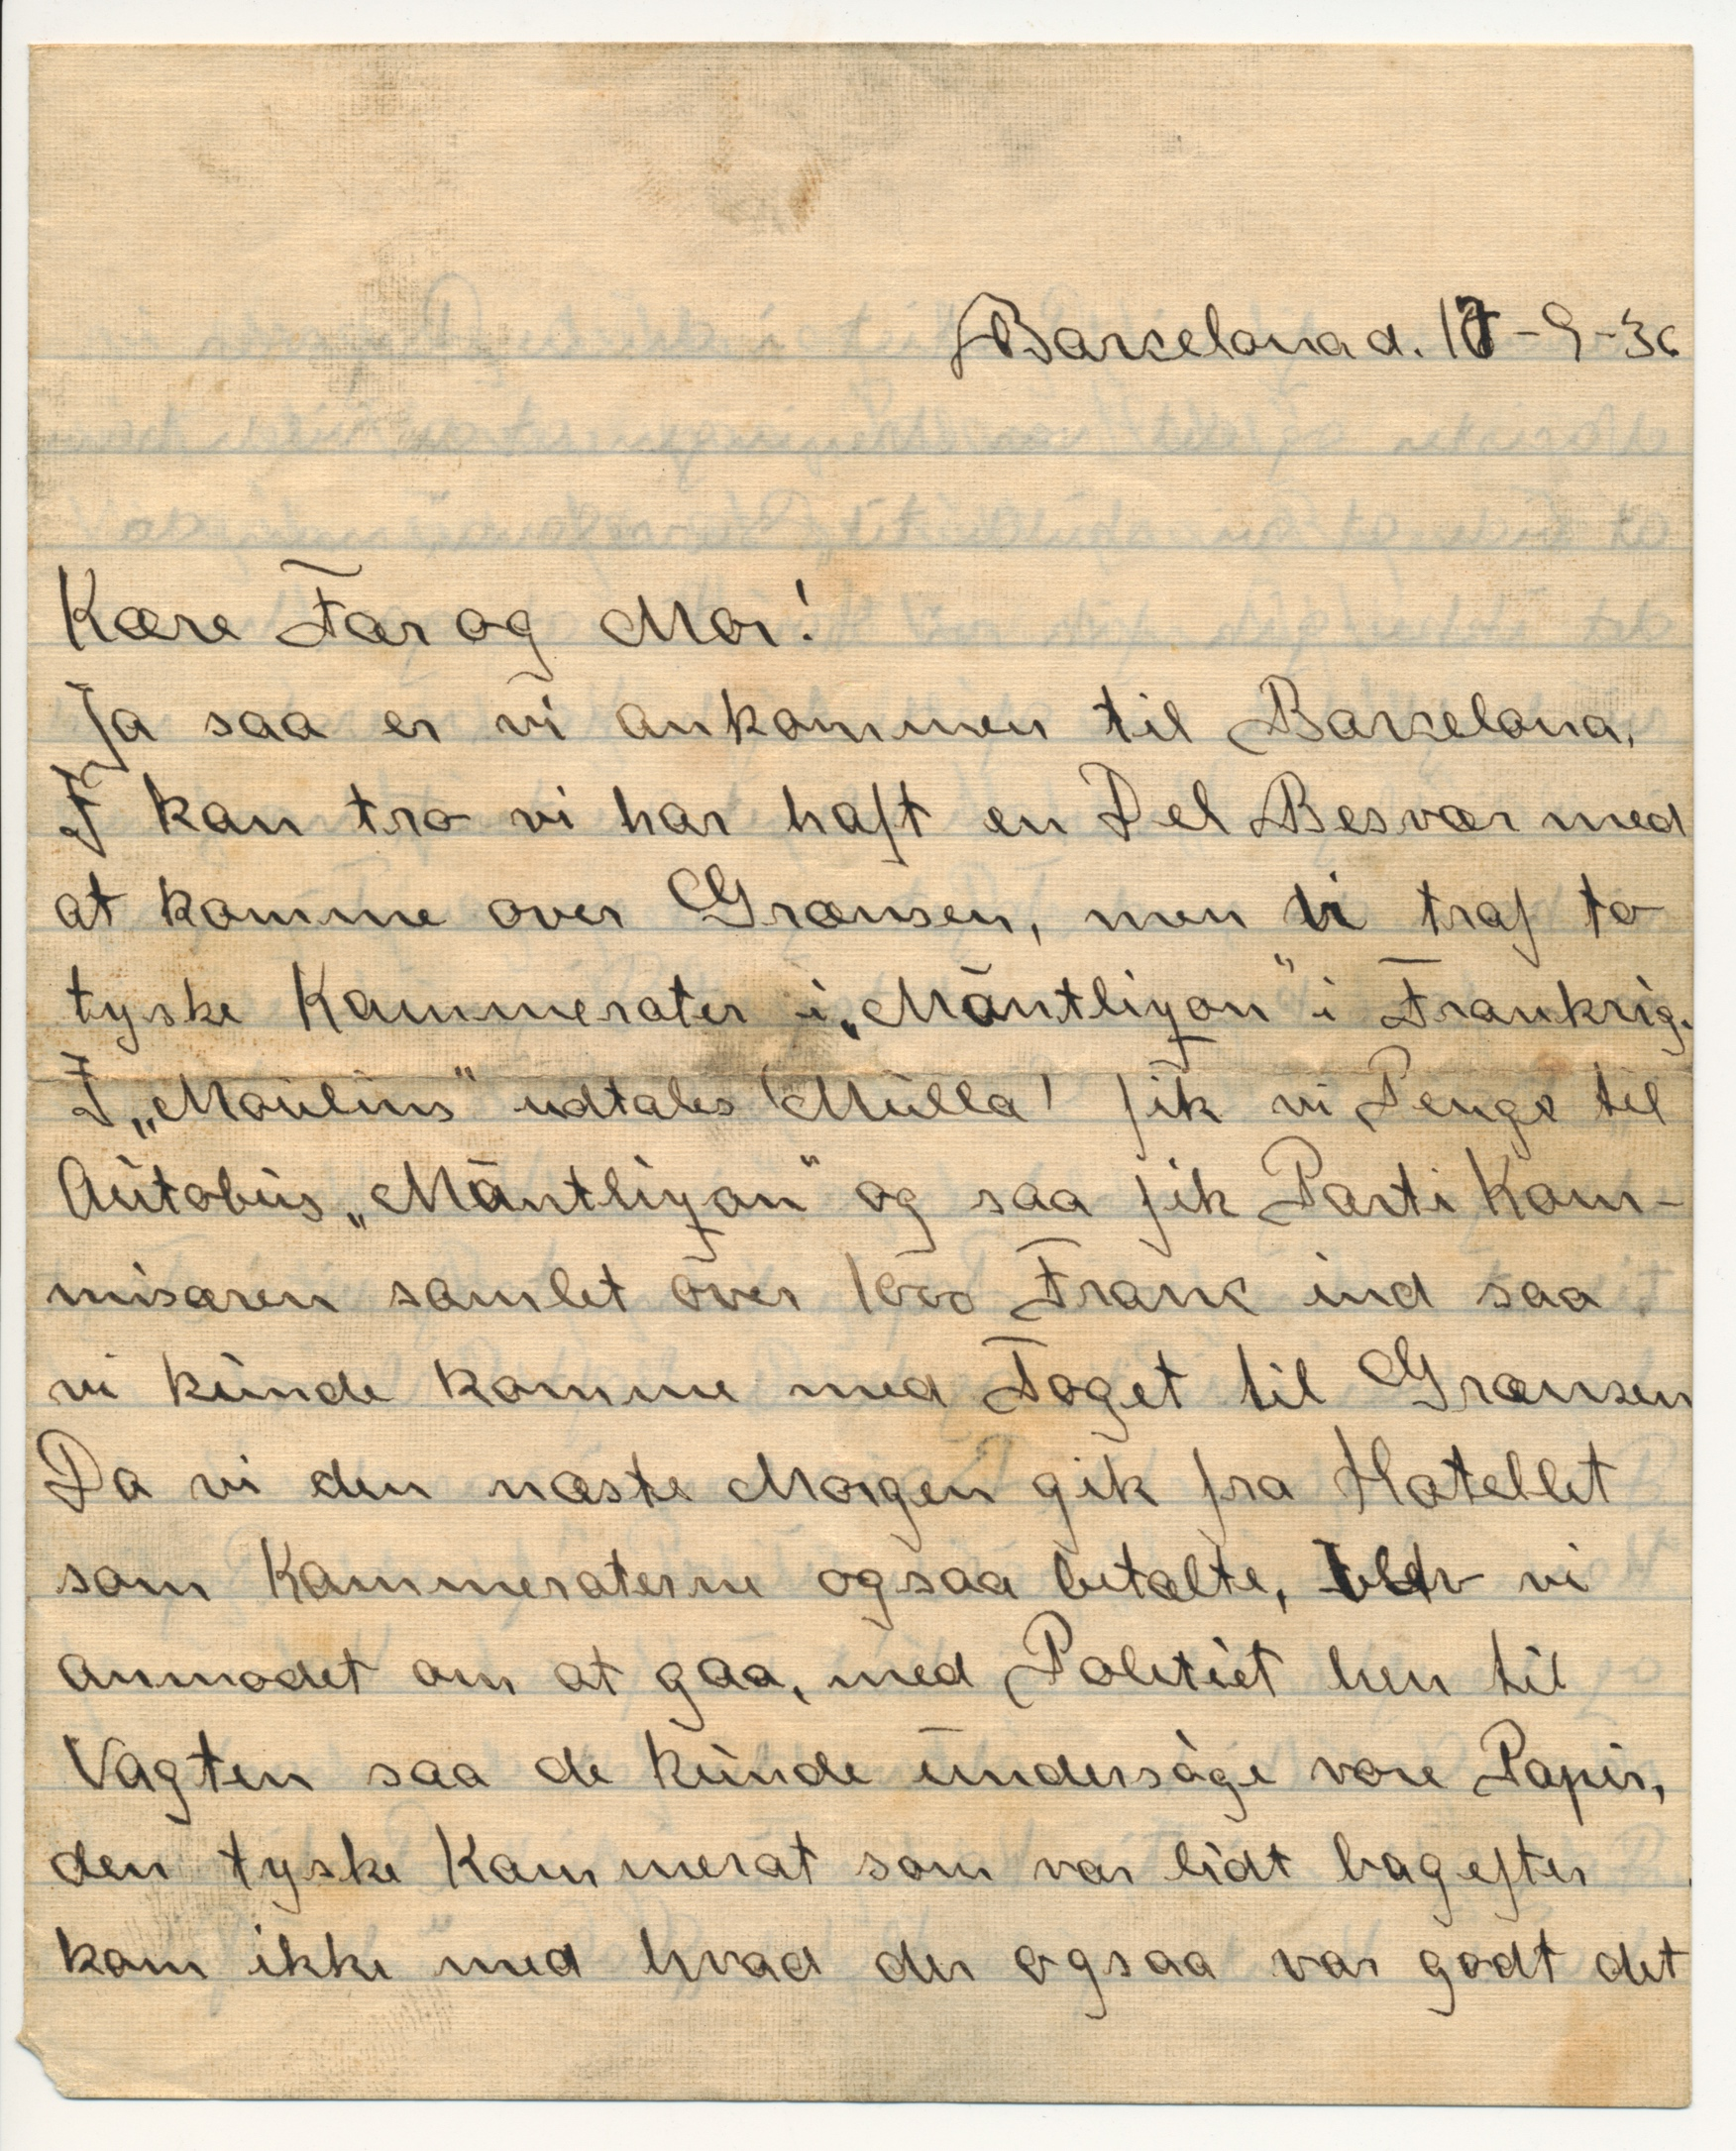 Barcelona d. 17-9-36
Kære Far og Mor!
Ja saa er vi ankommen til Barcelona.
I kan tro vi har haft en Del Besvær med
at komme over Grænsen, men vi traf to
tyske Kammerater i „Mäntliҫon" i Frankrig.
I „Moulins" udtales 'Mulla' fik vi Penge til
Autobus „Mäntliҫon" og saa fik Parti Kom-
misæren samlet over 1000 Franc ind saa
vi kunde komme med Toget til Grænsen
Da vi den næste Morgen gik fra Hotellet
som Kammeraterne ogsaa betalte, blev vi
anmodet om at gaa, med Politiet hen til
Vagten saa de kunde undersøge vore Papir,
den tyske Kammerat som var lidt bagefter
kom ikke med hvad der ogsaa var godt det